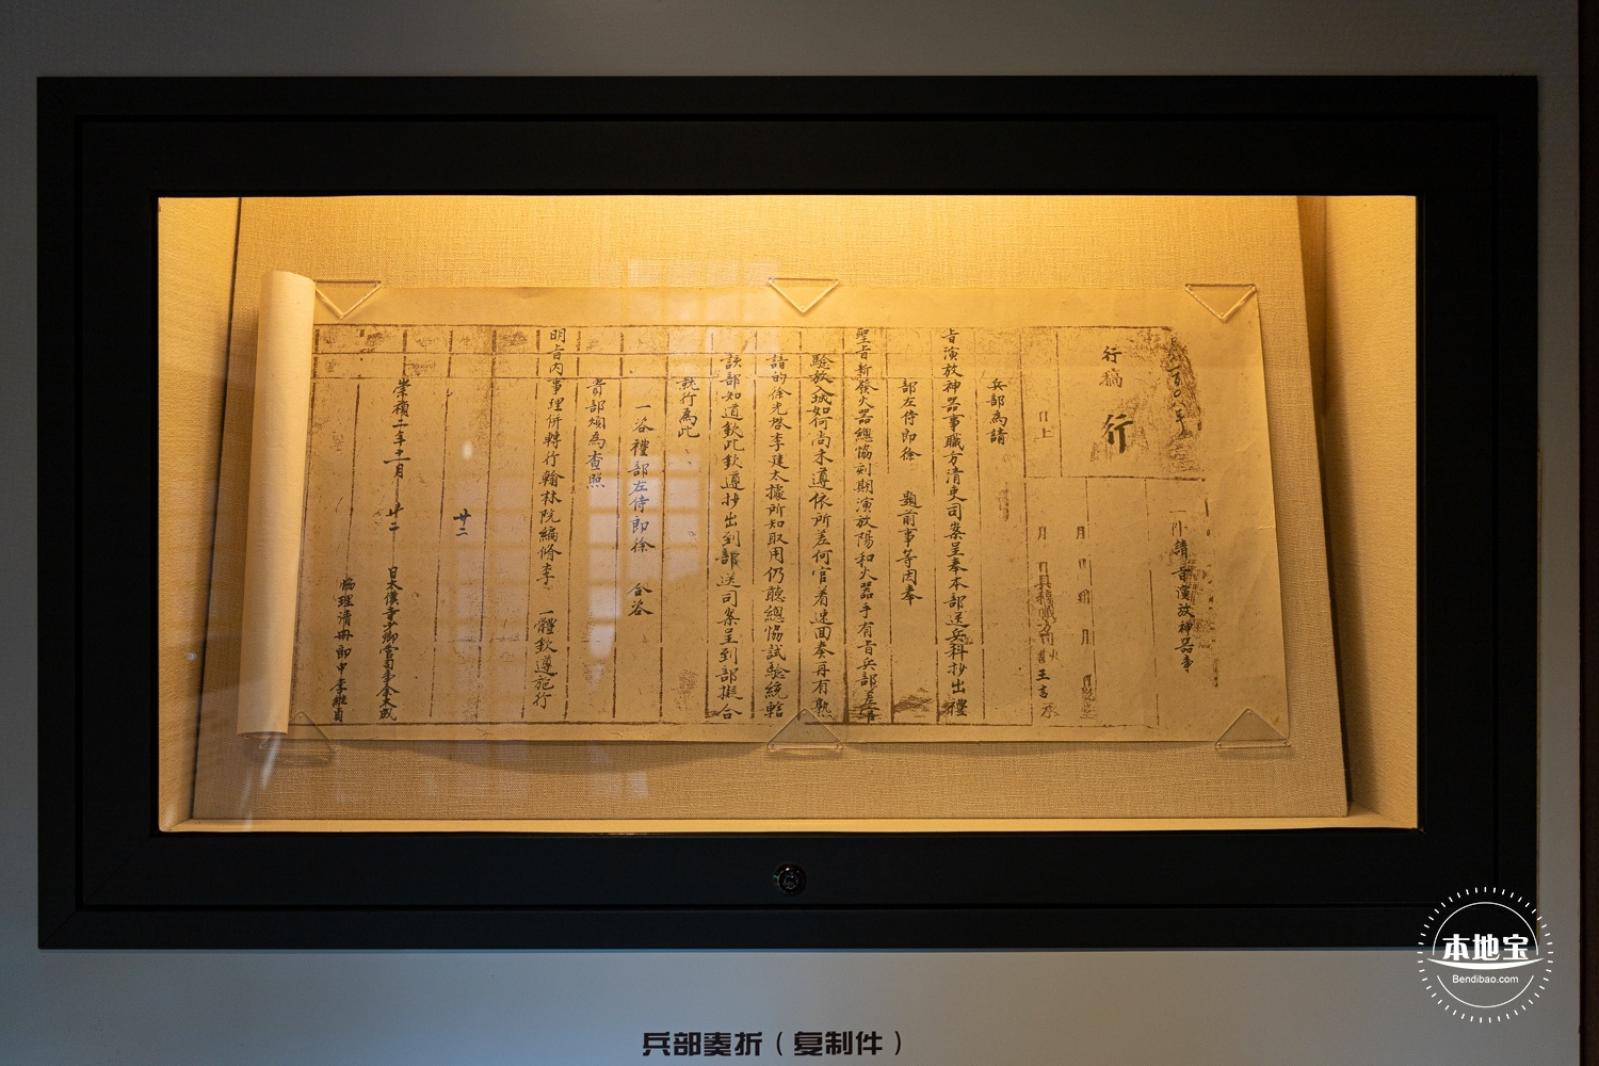 行稿
行
一件請旨演放神器事
日上
月
月
兵部為請
旨演放神器事職方清吏司案呈奉本部送兵科抄出禮
部左侍郎徐 題前事等因奉
聖旨新發火器總協刻期演放陽和火器手有旨兵部差官
驗放入城如何尚未遵依所差何官着速回奏再有熟
請的徐光啓李建太據所知取用仍聽總協試驗統轄
該部知道欽此欽遵抄出到部送司案呈到部擬合
就行為此
一咨禮部左侍郎徐 合咨
貴部煩為查照
明旨內事理併轉行翰林院編修李 一體欽遵施行
廿二
崇禎二年十一月 廿二 日太僕寺少卿管司事余大成
協理清冊郎中李繼貞
兵部奏折（复制件）
本地宝
Bendibao.com